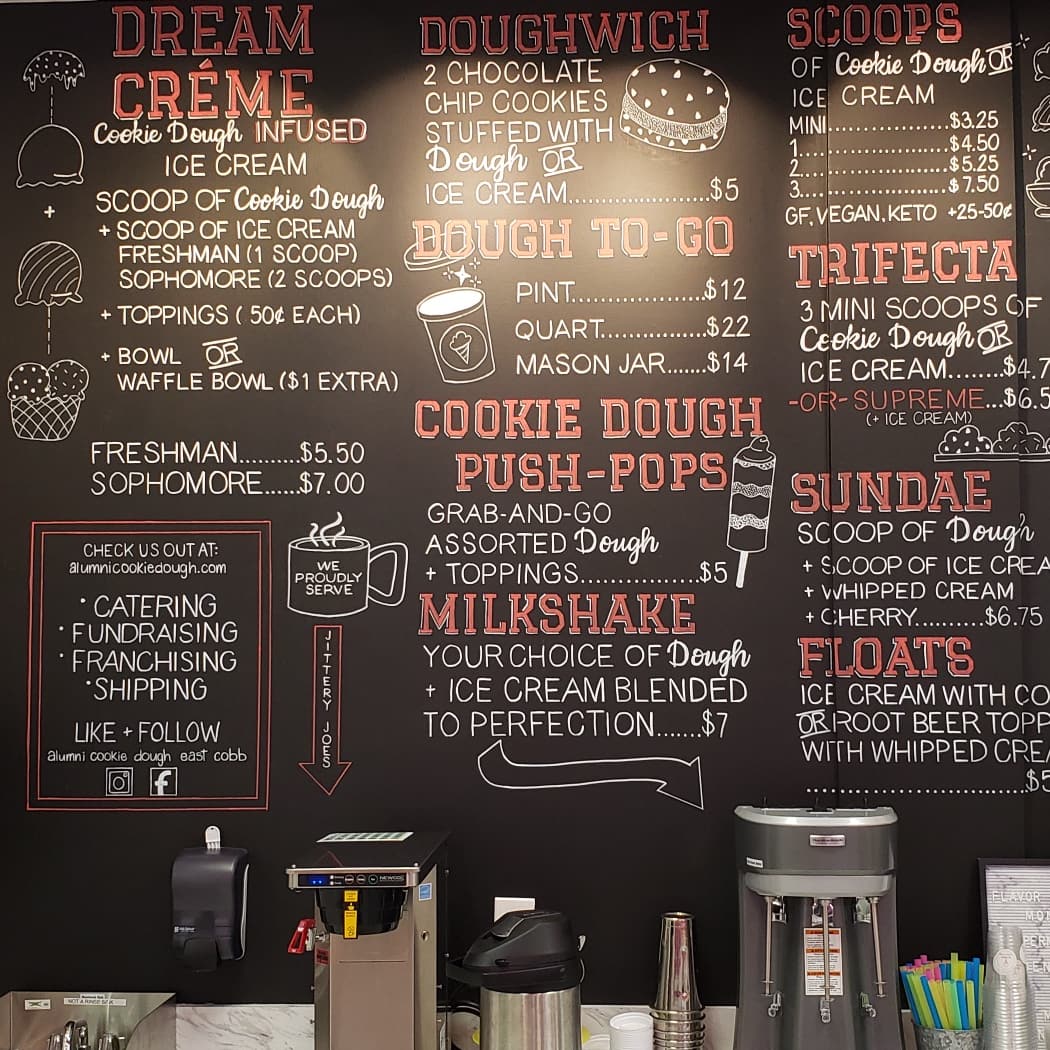 DREAM
CRÉME
Cookie Dough INFUSED
ICE CREAM
SCOOP OF Cookie Dough
+ SCOOP OF ICE CREAM
FRESHMAN (1 SCOOP)
SOPHOMORE (2 SCOOPS)
+ TOPPINGS ( 50¢ EACH)
+ BOWL OR
WAFFLE BOWL ($1 EXTRA)
FRESHMAN..........$5.50
SOPHOMORE......$7.00
CHECK US OUT AT:
alumnicookiedough.com
• CATERING
• FUNDRAISING
• FRANCHISING
• SHIPPING
LIKE + FOLLOW
alumni cookie dough east cobb
WE
PROUDLY
SERVE
JITTERY JOES
DOUGHWICH
2 CHOCOLATE
CHIP COOKIES
STUFFED WITH
Dough OR
ICE CREAM....................$5
DOUGH TO-GO
PINT....................$12
QUART...............$22
MASON JAR.......$14
COOKIE DOUGH
PUSH-POPS
GRAB-AND-GO
ASSORTED Dough
+ TOPPINGS.................$5
MILKSHAKE
YOUR CHOICE OF Dough
+ ICE CREAM BLENDED
TO PERFECTION.......$7
SCOOPS
OF Cookie Dough OR
ICE CREAM
MINI....................$3.25
1.........................$4.50
2.........................$5.25
3.........................$7.50
GF, VEGAN, KETO +25-50¢
TRIFECTA
3 MINI SCOOPS OF
Cookie Dough OR
ICE CREAM........$4.7
-OR- SUPREME...$6.5
(+ ICE CREAM)
SUNDAE
SCOOP OF Dough
+ SCOOP OF ICE CREA
+ WHIPPED CREAM
+ CHERRY..........$6.75
FLOATS
ICE CREAM WITH CO
OR ROOT BEER TOPP
WITH WHIPPED CREA
..............................$5
NEWCO
NOT A RINSE SINK
FLAVOR
MO